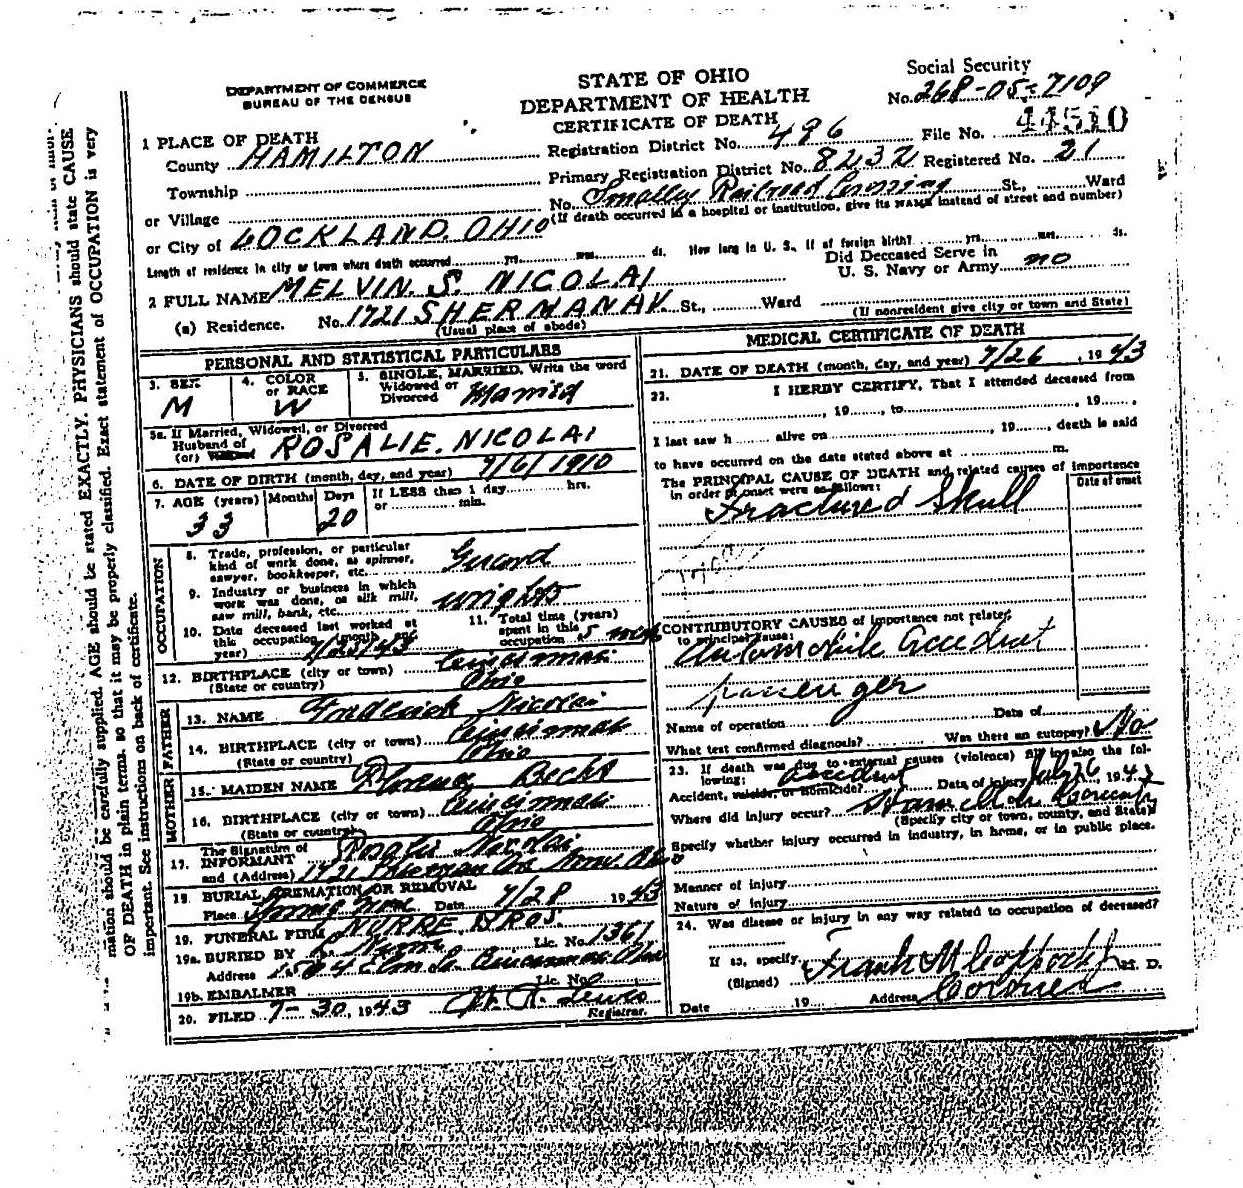 DEPARTMENT OF COMMERCE
BUREAU OF THE CENSUS
STATE OF OHIO
DEPARTMENT OF HEALTH
CERTIFICATE OF DEATH
Social Security
No. 268-05-7109
1 PLACE OF DEATH
County HAMILTON
Registration District No. 496 File No. 44510
Township
Primary Registration District No. 8232 Registered No. 21
or Village
No. Smalley Railroad Crossing St., Ward
(If death occurred in a hospital or institution, give its NAME instead of street and number)
or City of LOCKLAND. OHIO
Length of residence in city or town where death occurred yrs. mos. ds. How long in U. S., if of foreign birth? yrs. mos. ds.
Did Deceased Serve in
U. S. Navy or Army no
2 FULL NAME MELVIN S. NICOLAI
(a) Residence. No. 1721 SHERMAN AV St., Ward
(Usual place of abode) (If nonresident give city or town and State)
PERSONAL AND STATISTICAL PARTICULARS
3. SEX M
4. COLOR or RACE W
5. SINGLE, MARRIED, Write the word
Widowed or
Divorced Married
5a. If Married, Widowed, or Divorced
Husband of
(or) ROSALIE. NICOLAI
6. DATE OF BIRTH (month, day, and year) 7/6/1910
7. AGE (years) 33 Months Days 20 If LESS than 1 day hrs.
or min.
OCCUPATION
8. Trade, profession, or particular
kind of work done, as spinner,
sawyer, bookkeeper, etc. Guard
9. Industry or business in which
work was done, as silk mill,
saw mill, bank, etc. wrights
10. Date deceased last worked at
this occupation (month and
year) 7/25/43
11. Total time (years)
spent in this
occupation 5 mth
12. BIRTHPLACE (city or town) Cincinnati
(State or country) Ohio
FATHER
13. NAME Frederick Nicolai
14. BIRTHPLACE (city or town) Cincinnati
(State or country) Ohio
MOTHER
15. MAIDEN NAME Florence Becht
16. BIRTHPLACE (city or town) Cincinnati
(State or country) Ohio
17. The Signature of
INFORMANT Rosalie Nicolai
and (Address) 1721 Sherman Ave Norw. Ohio
18. BURIAL, CREMATION OR REMOVAL
Place Spring Grove Date 7/28 1943
19. FUNERAL FIRM NURRE BROS.
19a. BURIED BY Nurre Lic. No. 1361
Address 1504 Elm St. Cincinnati Ohio
19b. EMBALMER Lic. No.
20. FILED 7-30, 1943 Lewis
Registrar.
MEDICAL CERTIFICATE OF DEATH
21. DATE OF DEATH (month, day, and year) 7/26, 1943
22. I HERBY CERTIFY, That I attended deceased from
, 19 , to , 19 ,
I last saw h alive on , 19 , death is said
to have occurred on the date stated above at m.
The PRINCIPAL CAUSE OF DEATH and related causes of importance
in order of onset were as follows: Date of onset
Fractured Skull
CONTRIBUTORY CAUSES of importance not related
to principal cause:
Automobile accident
passenger
Name of operation Date of
What test confirmed diagnosis? Was there an autopsy? No
23. If death was due to external causes (violence) fill in also the fol-
lowing:
Accident, suicide, or homicide? accident Date of injury July 26 1943
Where did injury occur? Hamilton County
(Specify city or town, county, and State)
Specify whether injury occurred in industry, in home, or in public place.
Manner of injury
Nature of injury
24. Was disease or injury in any way related to occupation of deceased?
If so, specify
(Signed) Frank M Coppock Jr M. D.
Date 19 Address Coroner
mation should be carefully supplied. AGE should be stated EXACTLY. PHYSICIANS should state CAUSE
OF DEATH in plain terms, so that it may be properly classified. Exact statement of OCCUPATION is very
important. See instructions on back of certificate.